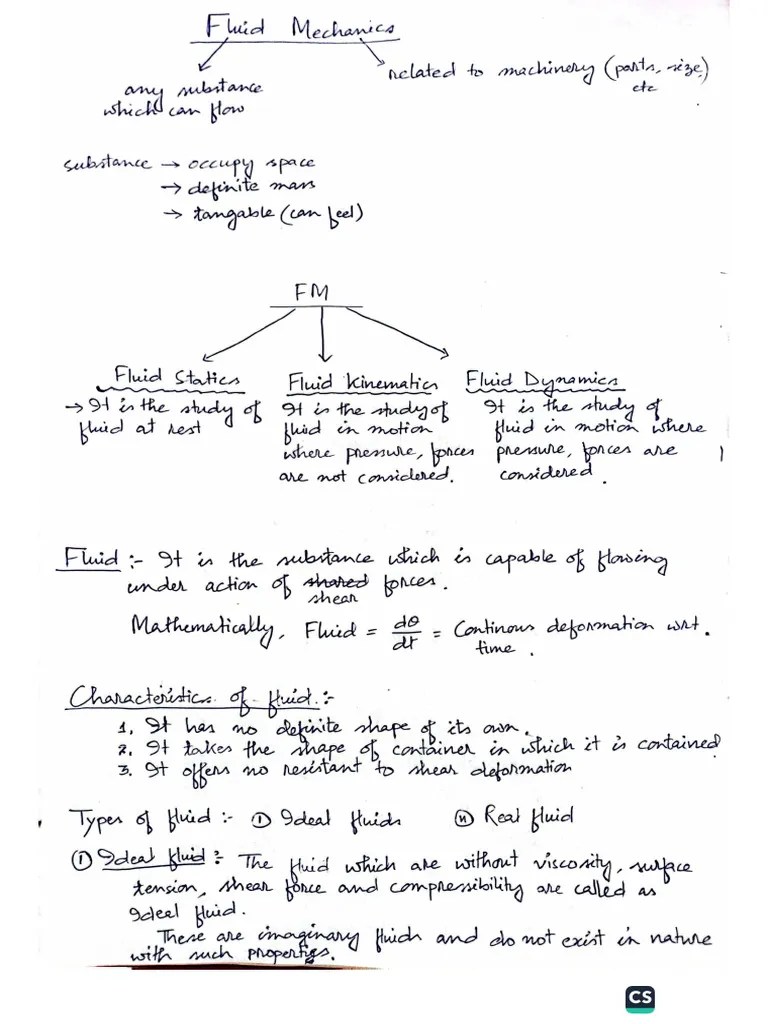 Fluid Mechanics
any substance
which can flow
related to machinery (parts, size)
etc
substance → occupy space
→ definite mass
→ tangable (can feel)
FM
Fluid Statics
→ It is the study of
fluid at rest
Fluid Kinematics
It is the study of
fluid in motion
where pressure, forces
are not considered.
Fluid Dynamics
It is the study of
fluid in motion where
pressure, forces are
considered.
Fluid :- It is the substance which is capable of flowing
under action of shared forces.
shear
Mathematically, Fluid = dθ/dt = Continous deformation wrt.
time.
Characteristics of fluid :-
1. It has no definite shape of its own.
2. It takes the shape of container in which it is contained
3. It offers no resistant to shear deformation
Types of fluid :- ① Ideal fluids ⑪ Real fluid
① Ideal fluid :- The fluid which are without viscosity, surface
tension, shear force and compressibility are called as
Ideel fluid.
These are imaginary fluids and do not exist in nature
with such properties.
CS